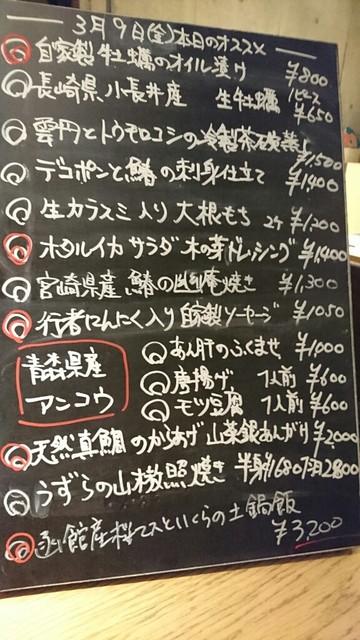 3月9日(金)本日のオススメ
自家製 牡蠣のオイル漬け ¥800
長崎県小長井産 生牡蠣 1ピース ¥650
雲丹とトウモロコシの冷製茶碗蒸し ¥1,500
デコポンと鰆の刺身仕立て ¥1,400
生カラスミ入り大根もち 2ケ ¥1,200
ホタルイカサラダ 木の芽ドレッシング ¥1,400
宮崎県産 鰆の幽庵焼き ¥1,300
行者にんにく入り自家製ソーセージ ¥1,050
青森県産
アンコウ
あん肝のふくませ ¥1,000
唐揚げ 1人前 ¥600
モツ豆腐 1人前 ¥600
天然真鯛のからあげ 山菜銀あんがけ ¥2,000
うずらの山椒照焼き 半身1,680 1羽2,800
函館産桜マスといくらの土鍋飯
¥3,200